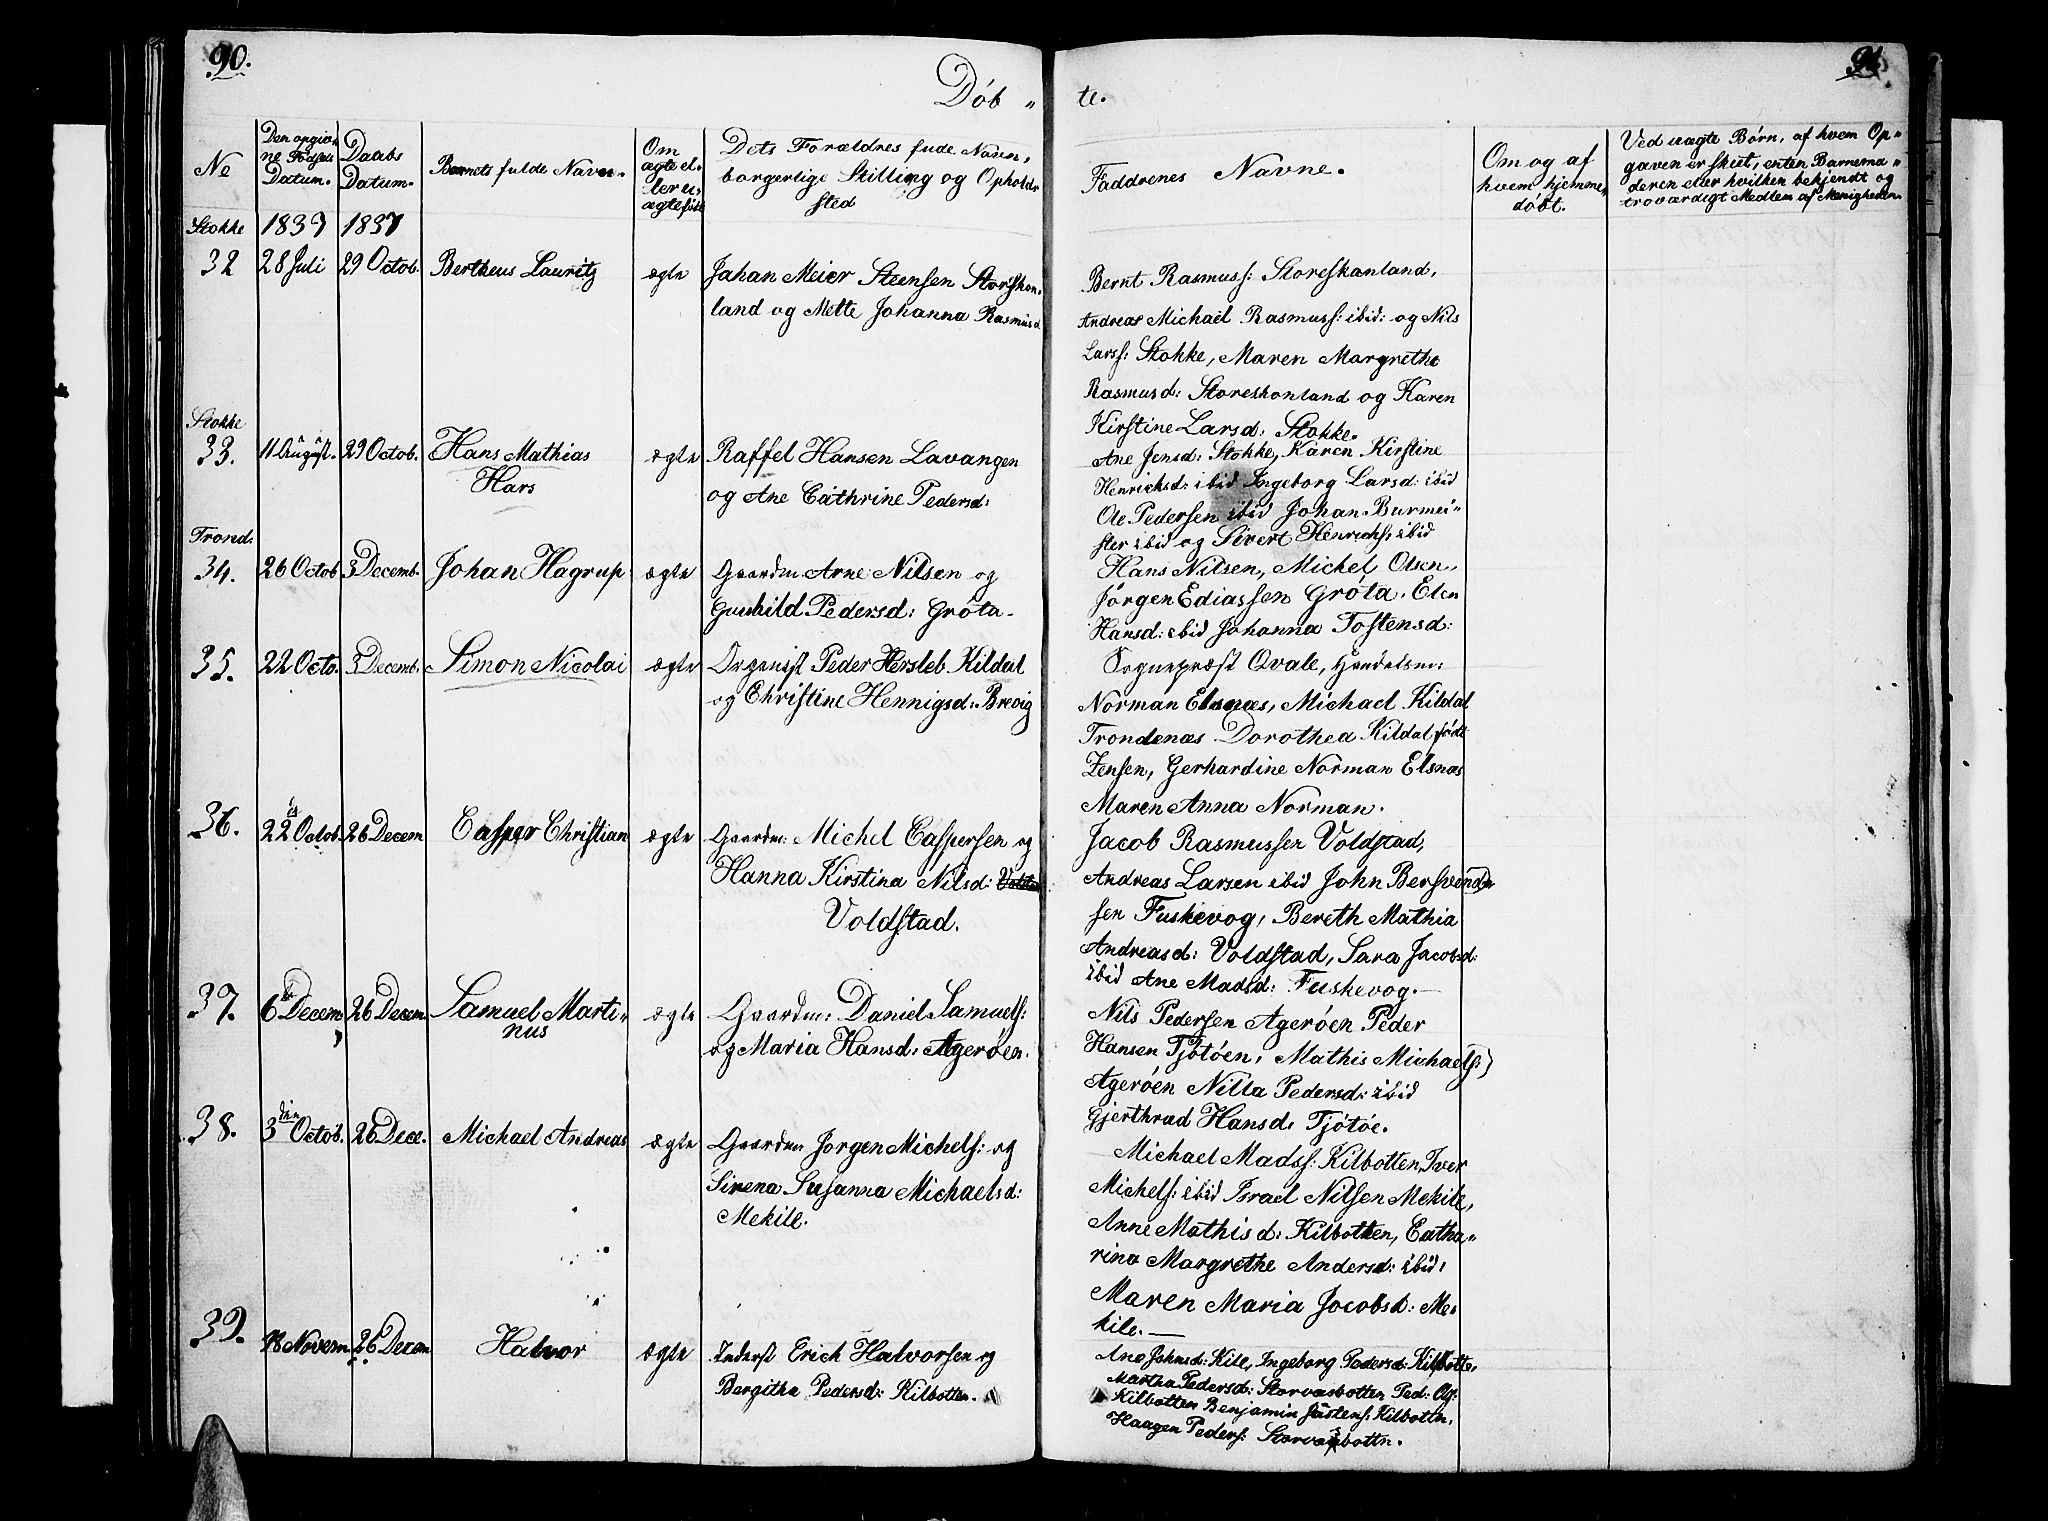 90.
91
Döb " te.
No
Den opgiv-
ne Fødsels
Datum.
Daabs
Datum.
Barnets fulde Navn.
Om
ægte el-
ler u-
ægte født
Dets Forældres fude Navn,
borgerlige Stilling og Opholds
sted
Faddrenes Navne.
Om og af
hvem hjemme-
døbt.
Ved uægte Børn, af hvem Op-
gaven er skeet, enten Barnema-
deren eller hvilken bekjendt og
troværdigt Medlem af Menigheden.
Stokke 1837 1837
32 28 Juli 29 Octob. Bertheus Lauritz ægte Jahan Meier Steensen Storskon-
land og Mette Johanna Rasmusd
Bernt Rasmuss: Storeskanland,
Andreas Michael Rasmuss: ibid: og Nils
Larss: Stokke, Maren Margrethe
Rasmusd: Storeskonland og Karen
Kirstine Larsd: Stokke.
Stokke
33. 11 August. 29 Octob. Hans Mathias
Hars
ægte Raffel Hansen Lavangen
og Ane Cathrine Pedersd:
Ane Jensd: Stokke, Karen Kirstine
Henricksd: ibid Ingeborg Larsd: ibid
Ole Pedersen ibid Johan Burmei-
ster ibid og Sivert Henrichs: ibid
Trond:
34. 26 Octob 3 Decemb. Johan Hagrup ægte Gaardm Arne Nilsen og
Gunhild Pedersd: Gröta.
Hans Nilsen, Michel Olsen,
Jörgen Ediassen Gröta. Elen
Hansd: ibid Johanna Tostensd:
35. 22 Octo. 3 Decemb. Simon Nicolai ægte Organist Peder Hersleb Kildal
og Christine Hennigsd: Brevig
Sognepræst Qvale, Handelsm:
Norman Elsnæs, Michael Kildal
Trondenæs Dorothea Kildal født
Zensen, Gerhardine Norman Elsnæs
Maren Anna Norman.
36. 22 Octob. 26 Decem Casper Christian ægte Gaardm: Michel Caspersen og
Hanna Kirstina Nilsd:
Voldstad.
Jacob Rasmussen Voldstad,
Andreas Larsen ibid John Bersvend-
sen Fuskevog, Bereth Mathia
Andreasd: Voldstad, Sara Jacobsd:
ibid Ane Madsd: Fuskevog.
37. 6 Decem 26 Decem. Samuel Marti-
nus
ægte Gaardm: Daniel Samuels:
og Maria Hansd: Ageröen.
Nils Pedersen Ageröen Peder
Hansen Tjötöen, Mathis Michaels:
Ageröen Nilla Pedersd: ibid
Gjerthrud Hansd: Tjötöe.
38. 3 den Octob. 26 Dece. Michael Andreas ægte Gaardm Jorgen Michels: og
Sirena Susanna Michaelsd:
Mekile.
Michael Madss: Kilbotten, Iver
Michels: ibid Israel Nilsen Mekile,
Anne Mathisd: Kilbotten, Catha-
rina Margrethe Andersd: ibid:
Maren Maria Jocobsd: Me-
kile.
39. 18 Novem 26 Decem Halvor ægte Inderst Erich Halvorsen og
Bergitha Pedersd: Kilbotten.
Ane Johnsd: Kile, Ingeborg Pedersd: Kilbotten,
Martha Pedersd: Storvasbotten Ped: Ols:
Kilbotten Benjamin Justens: Kilbottn,
Haagen Peders: Storvasbottn.